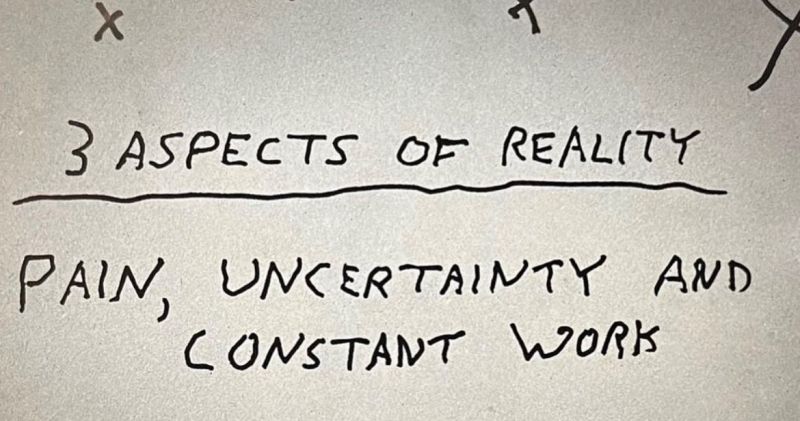 x
3 ASPECTS OF REALITY
PAIN, UNCERTAINTY AND
CONSTANT WORK